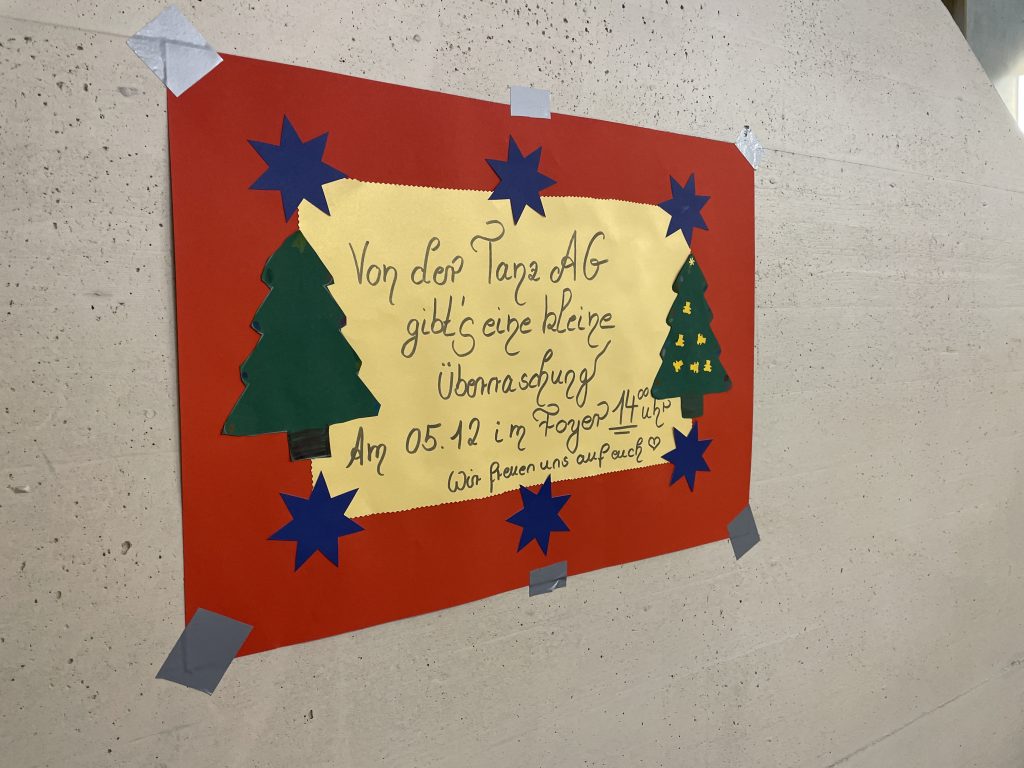 Von der Tanz AG
gibt's eine kleine
Überraschung
Am 05.12 im Foyer 14⁰⁰ Uhr
Wir freuen uns auf euch ♡